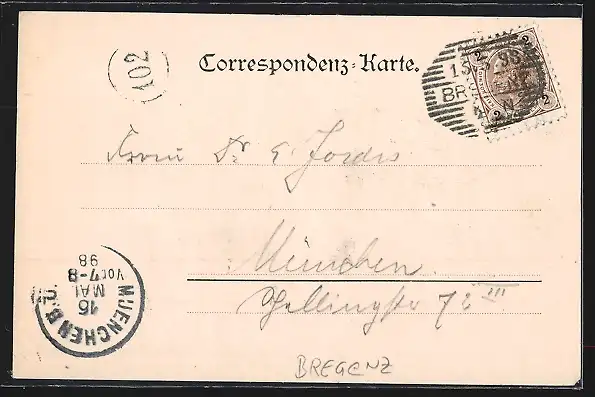 102
Correspondenz-Karte.
2 2
BRE
2 2
Herrn Dr. E. Jordis
München
Schellingstr 72 III
MUENCHEN B.
16
MAI
Vor. 7-8
98
BREGENZ